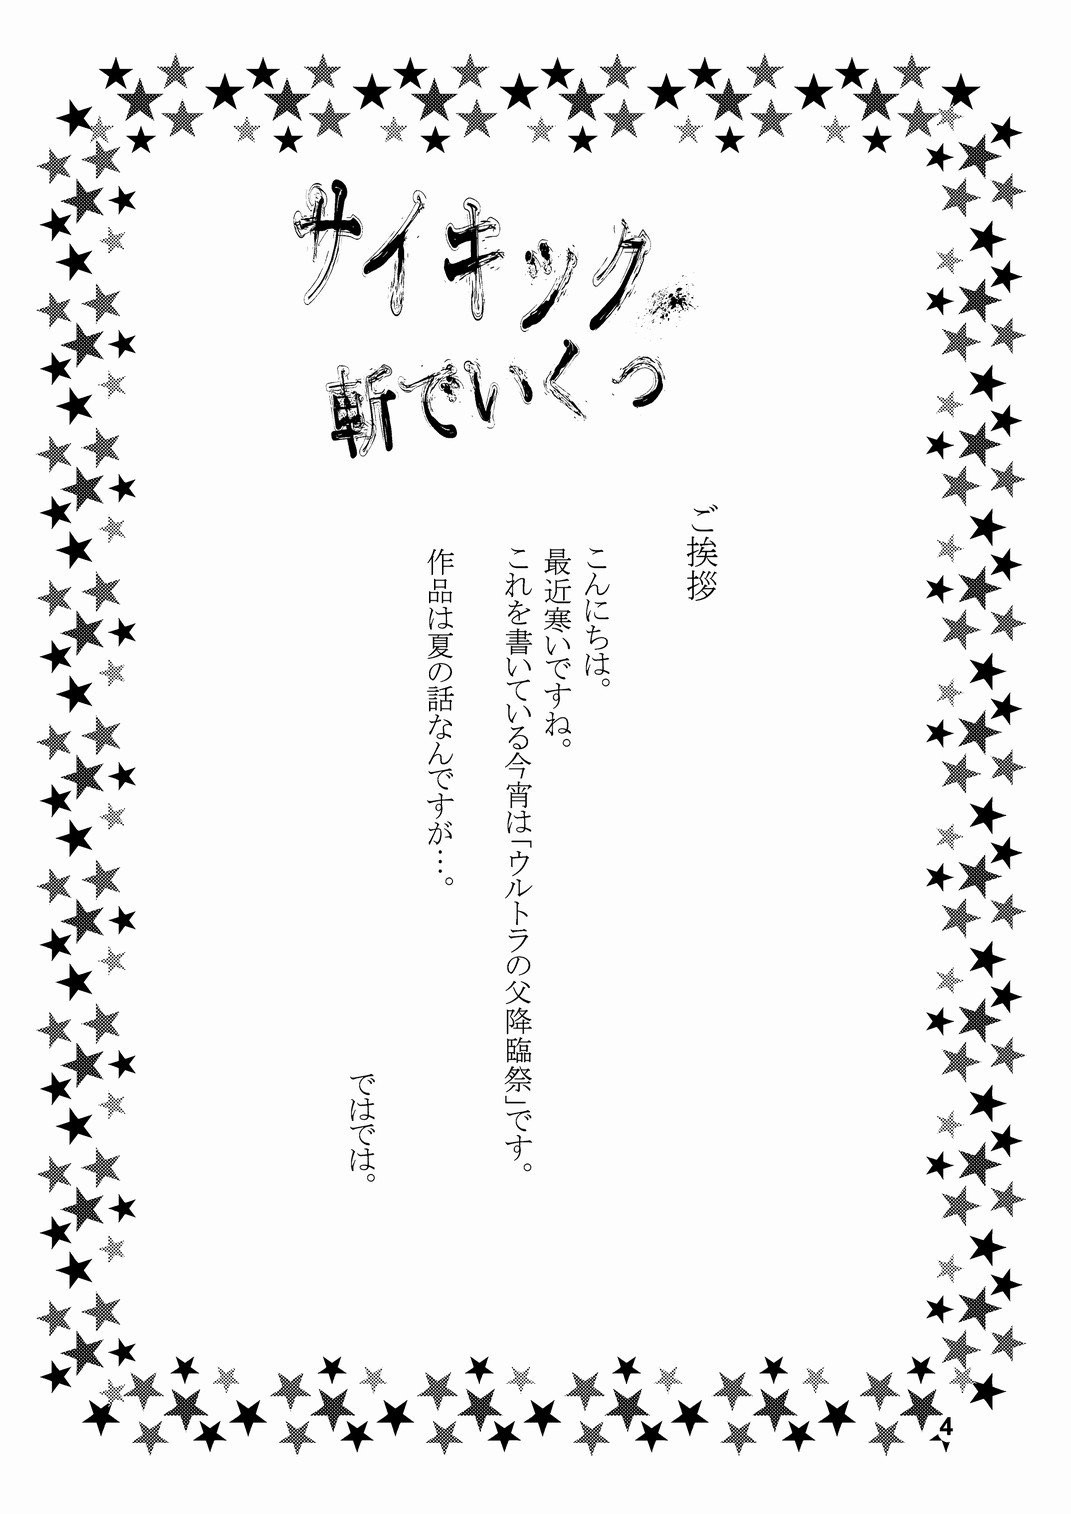 サイキック
斬でいくっ
ご挨拶
こんにちは。
最近寒いですね。
これを書いている今宵は「ウルトラの父降臨祭」です。
作品は夏の話なんですが…。
ではでは。
4